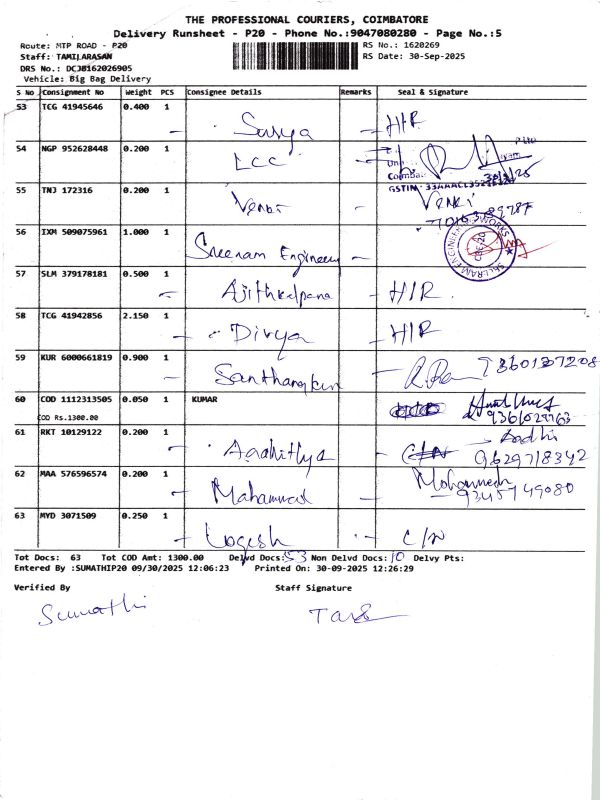 THE PROFESSIONAL COURIERS, COIMBATORE
Delivery Runsheet - P20 - Phone No.:9047080280 - Page No.:5
Route: MTP ROAD - P20
RS No.: 1620269
Staff: TAMILARASAN
RS Date: 30-Sep-2025
DRS No.: DCJB162026905
Vehicle: Big Bag Delivery
S No Consignment No Weight PCS Consignee Details Remarks Seal & Signature
53 TCG 41945646 0.400 1 Surya HIR
54 NGP 952628448 0.200 1 LCC
55 TNJ 172316 0.200 1 Venki Venki
56 IXM 509075961 1.000 1 Sreeram Engineering
57 SLM 379178181 0.500 1 Ajithkalpana HIR
58 TCG 41942856 2.150 1 Divya HIR
59 KUR 6000661819 0.900 1
60 COD 1112313505 0.050 1 KUMAR
COD Rs.1300.00
61 RKT 10129122 0.200 1 Aadhithya Aadhi
9629718342
62 MAA 576596574 0.200 1 Mahammad Mohammed
9345749080
63 MYD 3071509 0.250 1 Logesh C/N
Tot Docs: 63 Tot COD Amt: 1300.00 Delvd Docs: 53 Non Delvd Docs: 10 Delvy Pts:
Entered By :SUMATHIP20 09/30/2025 12:06:23 Printed On: 30-09-2025 12:26:29
Verified By Staff Signature
Sumathi